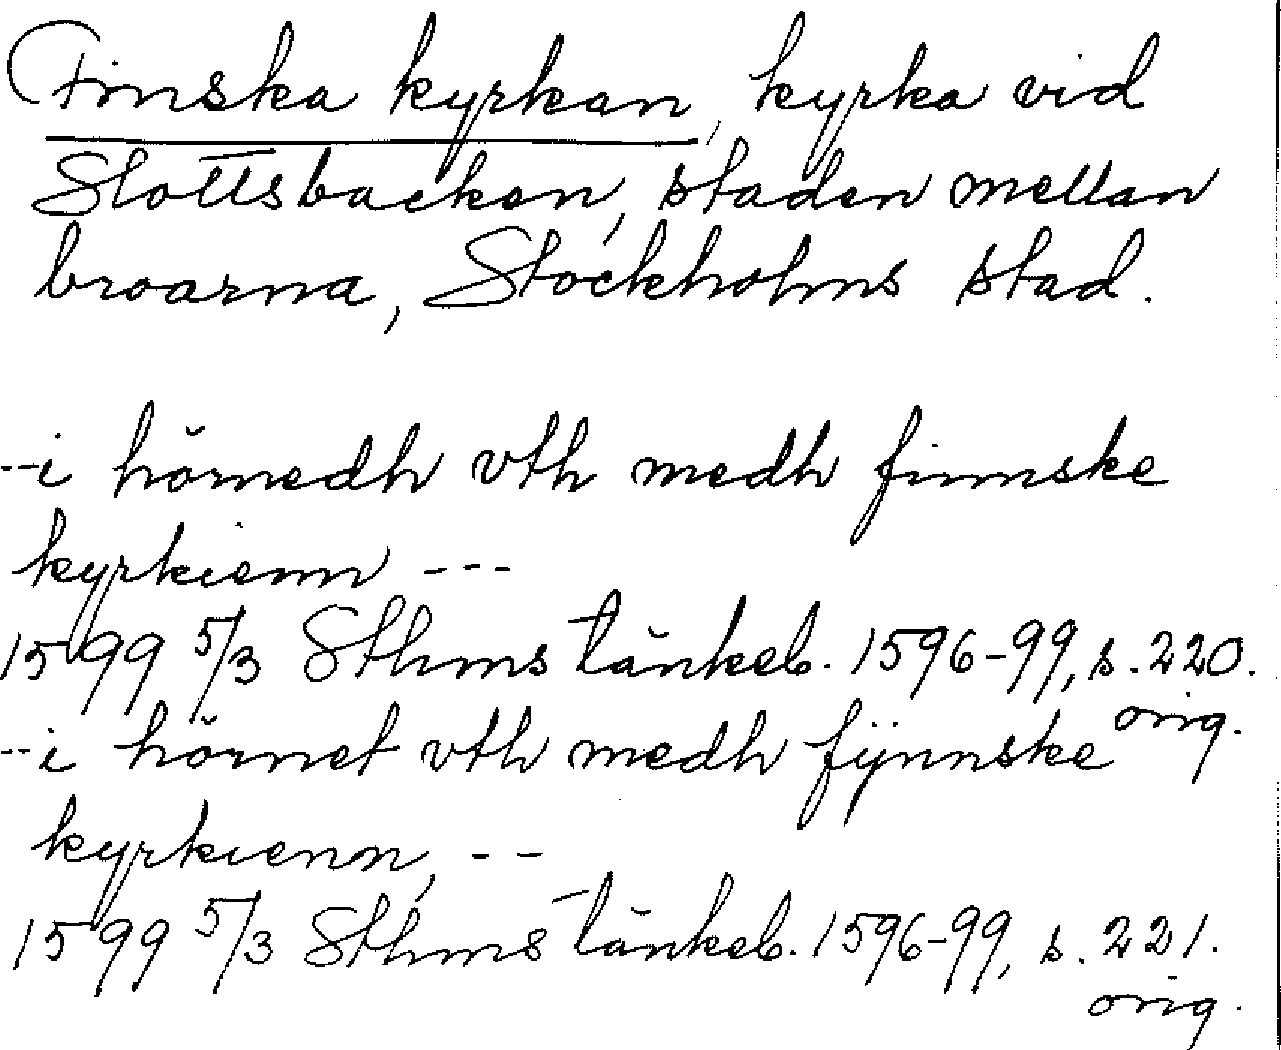 Finska kyrkan, kyrka vid
Slottsbacken, staden mellan
broarna, Stockholms stad.
--i hörnedh vth medh finnske
kyrkienn ---
1599 5/3 Sthms tänkeb. 1596-99, s. 220.
orig.
--i hörnet vth medh fijnnske
kyrkienn, --
1599 5/3 Sthms tänkeb. 1596-99, s. 221.
orig.